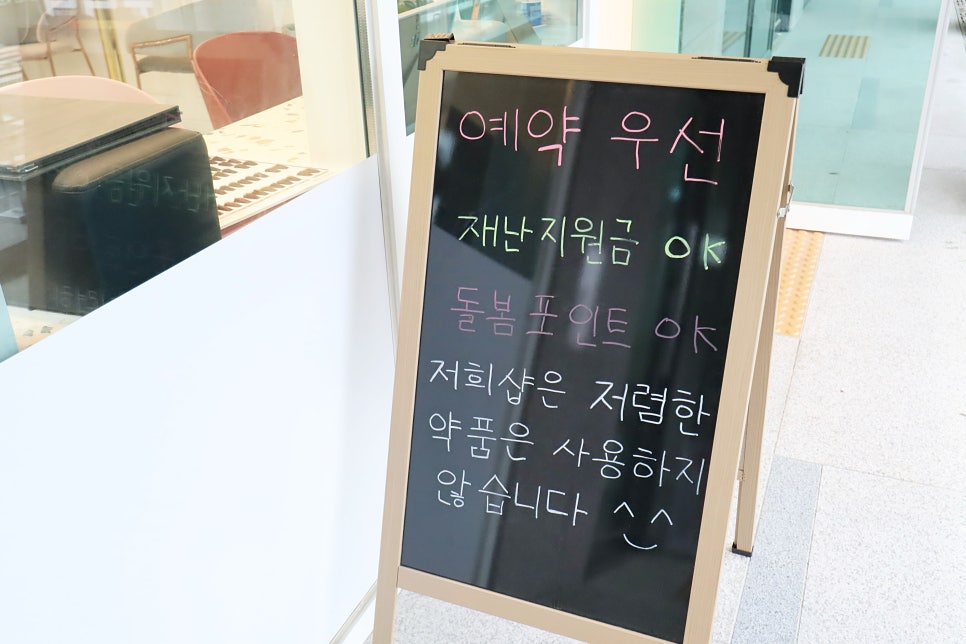 예약 우선
재난지원금 OK
돌봄포인트 OK
저희샵은 저렴한
약품은 사용하지
않습니다 ^_^